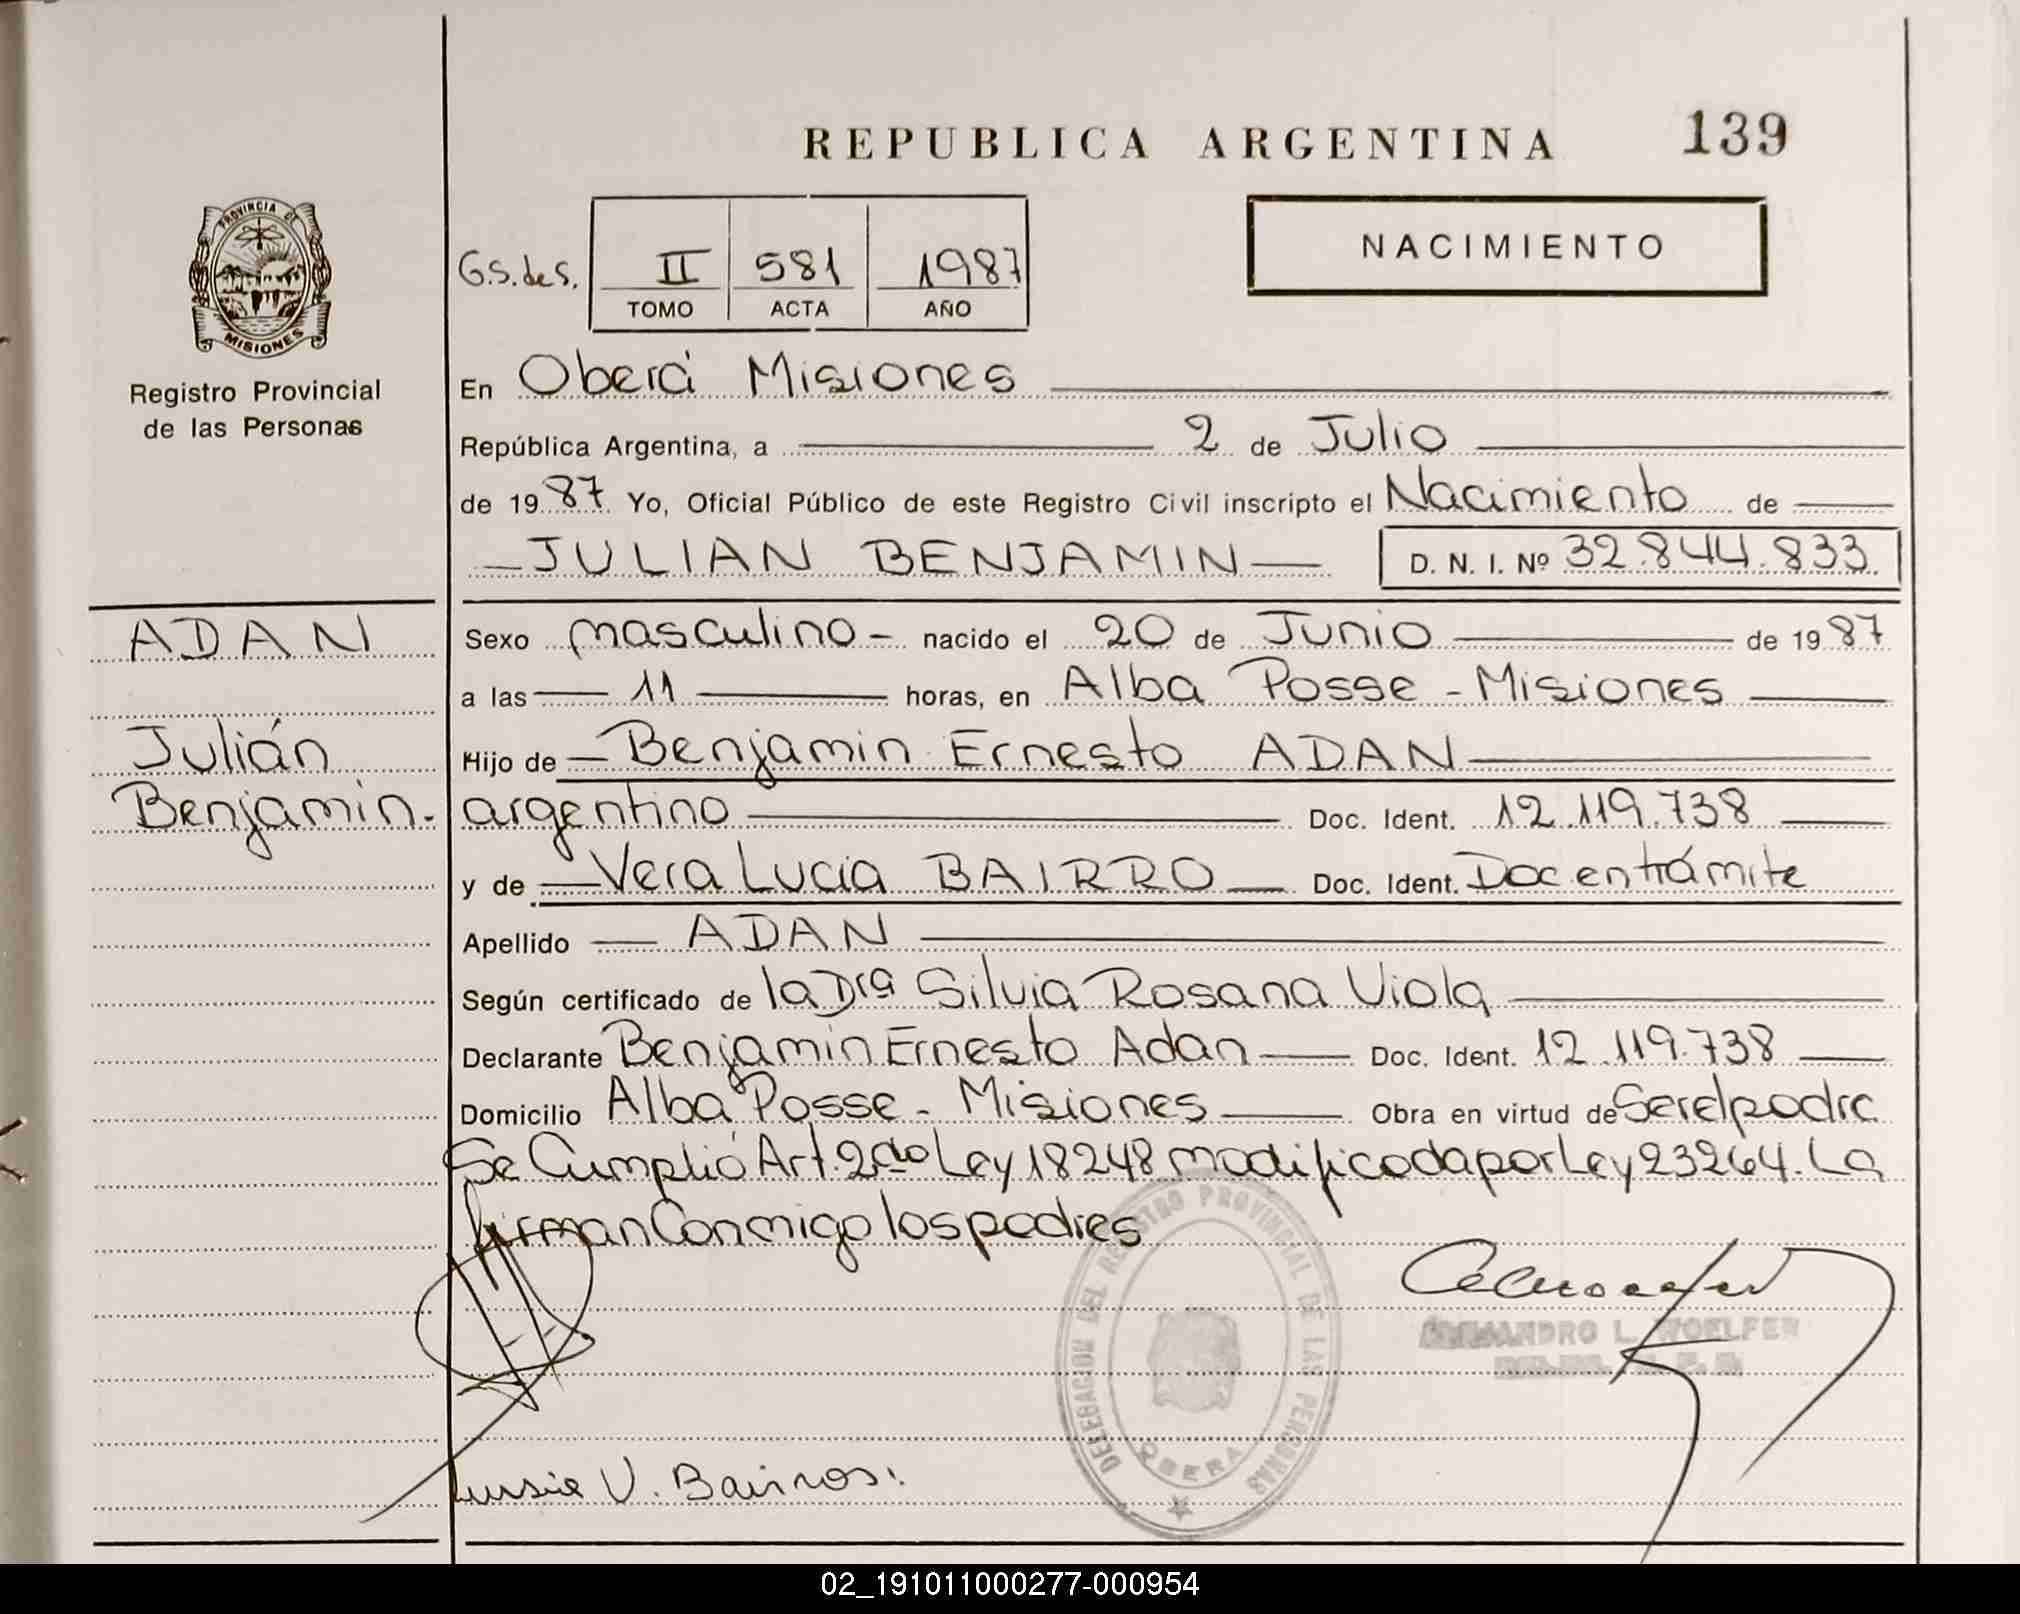 REPUBLICA ARGENTINA 139
NACIMIENTO
PROVINCIA DE
MISIONES
Registro Provincial
de las Personas
G.S.deS. II 581 1987
TOMO ACTA AÑO
En Oberá Misiones
República Argentina, a 2 de Julio
de 1987 Yo, Oficial Público de este Registro Civil inscripto el Nacimiento de
JULIAN BENJAMIN D. N. I. Nº 32.844.833
ADAN
Julián
Benjamin.
Sexo masculino nacido el 20 de Junio de 1987
a las 11 horas, en Alba Posse - Misiones
Hijo de Benjamin Ernesto ADAN
argentino Doc. Ident. 12.119.738
y de Vera Lucia BAIRRO Doc. Ident. Doc en trámite
Apellido ADAN
Según certificado de la Dra Silvia Rosana Viola
Declarante Benjamin Ernesto Adan Doc. Ident. 12.119.738
Domicilio Alba Posse - Misiones Obra en virtud de Ser el padre
Se Cumplió Art. 2do Ley 18248 modificada por Ley 23264. La
firman Conmigo los padres
DELEGACION DEL REGISTRO PROVINCIAL DE LAS PERSONAS
OBERA
L. WOELFER
V. Bairros.
02_191011000277-000954